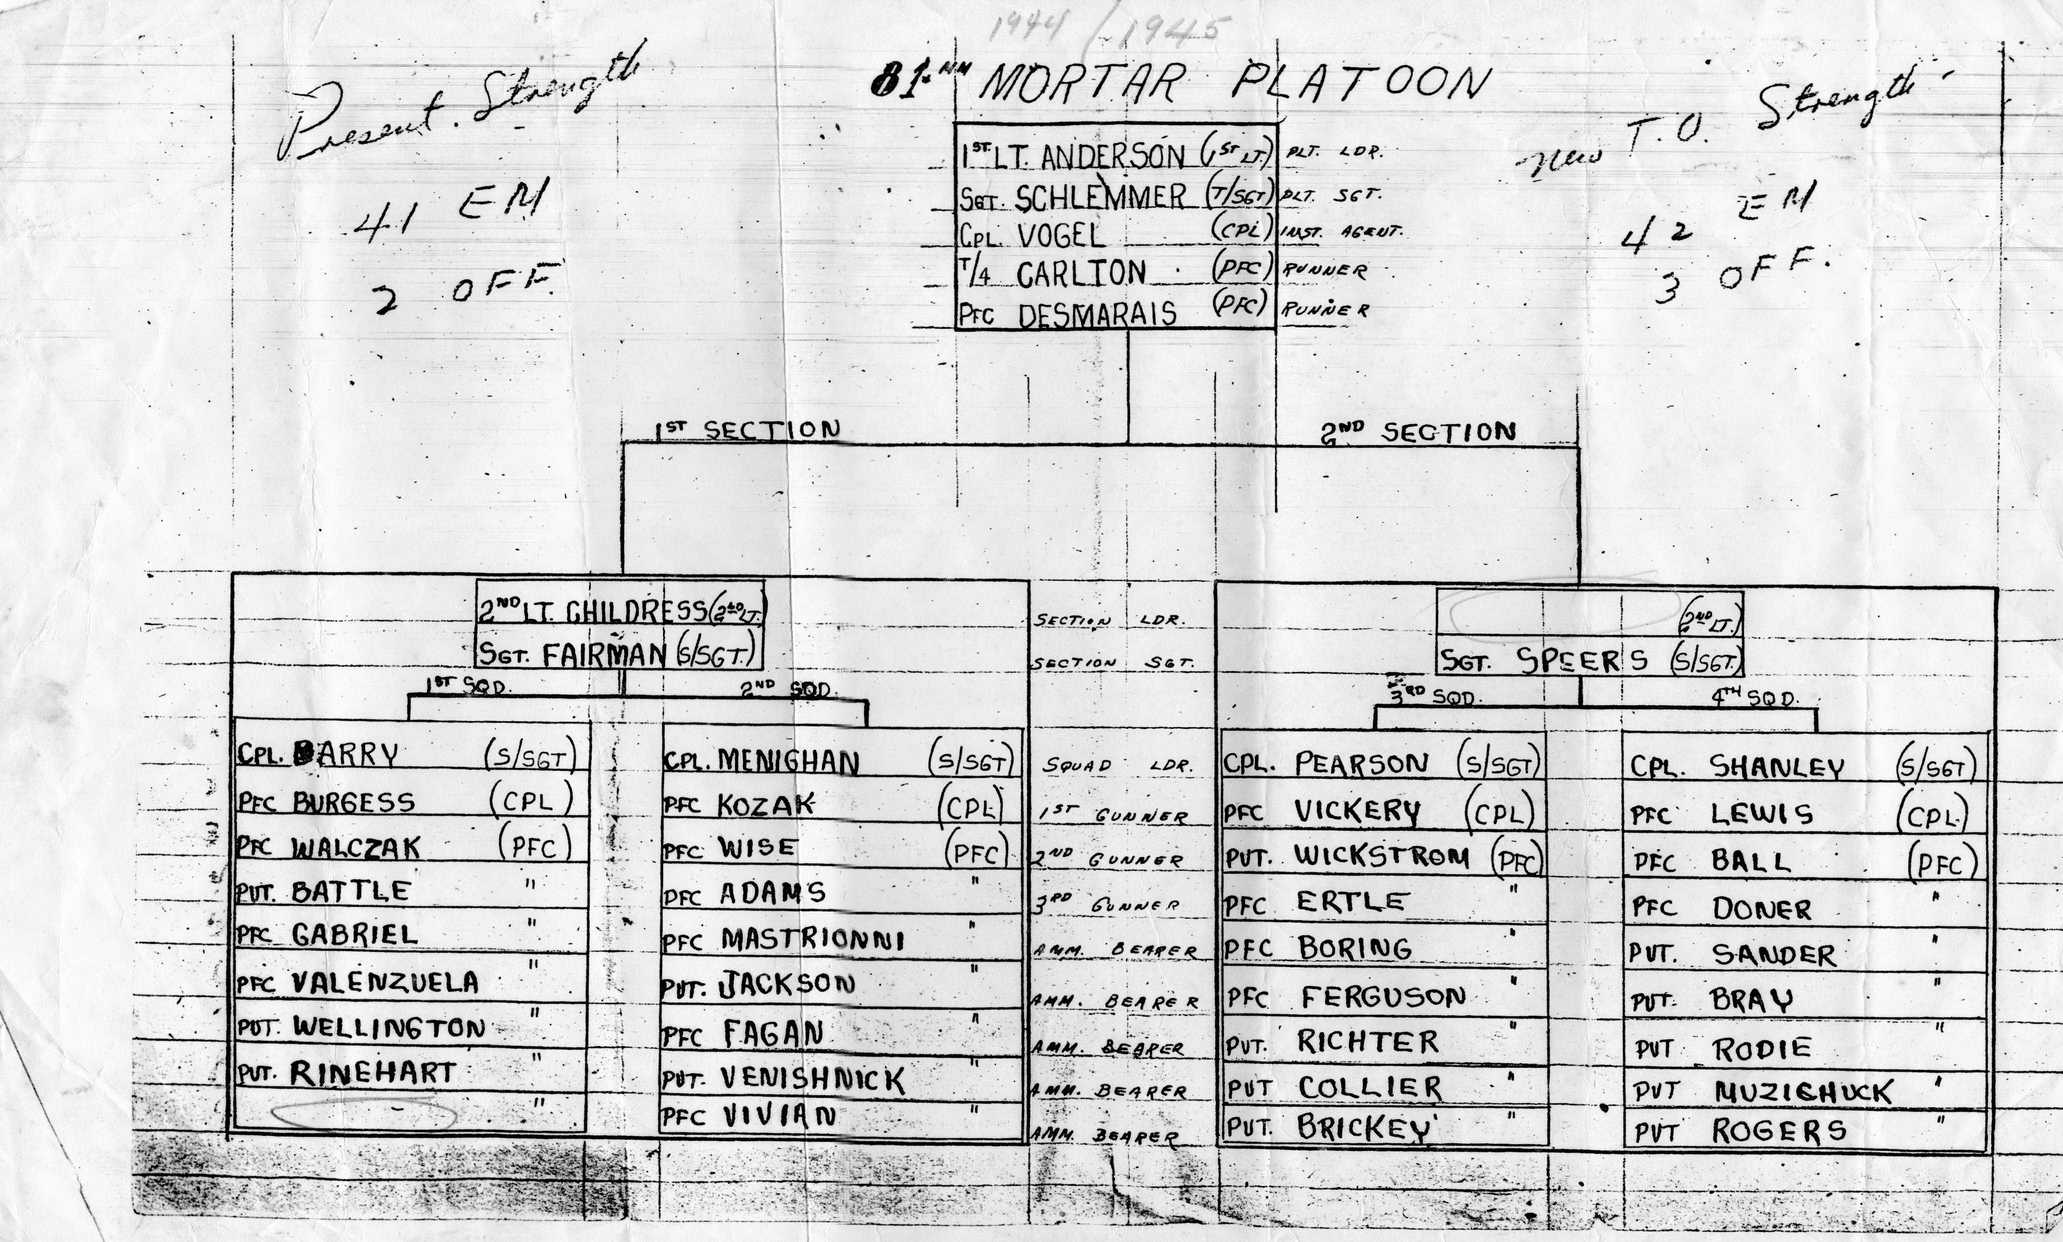 1944 / 1945
81 MM MORTAR PLATOON
Present. Strength
41 EM
2 OFF.
New T.O. Strength
42 EM
3 OFF.
1ST LT. ANDERSON (1ST LT.) PLT. LDR.
SGT. SCHLEMMER (T/SGT) PLT. SGT.
CPL. VOGEL (CPL) INST. AGENT.
T/4 CARLTON (PFC) RUNNER
PFC DESMARAIS (PFC) RUNNER
1ST SECTION
2ND SECTION
2ND LT. CHILDRESS (2ND LT.)
SGT. FAIRMAN (S/SGT.)
SECTION LDR.
SECTION SGT.
(2ND LT.)
SGT. SPEERS (S/SGT.)
1ST SQD.
2ND SQD.
3RD SQD.
4TH SQD.
CPL. BARRY (S/SGT)
PFC BURGESS (CPL)
PFC WALCZAK (PFC)
PVT. BATTLE "
PFC GABRIEL "
PFC VALENZUELA "
PVT. WELLINGTON "
PVT. RINEHART "
"
CPL. MENIGHAN (S/SGT)
PFC KOZAK (CPL)
PFC WISE (PFC)
PFC ADAMS "
PFC MASTRIONNI "
PVT. JACKSON "
PFC FAGAN "
PVT. VENISHNICK "
PFC VIVIAN "
SQUAD LDR.
1ST GUNNER
2ND GUNNER
3RD GUNNER
AMM. BEARER
AMM. BEARER
AMM. BEARER
AMM. BEARER
AMM. BEARER
CPL. PEARSON (S/SGT)
PFC VICKERY (CPL)
PVT. WICKSTROM (PFC)
PFC ERTLE "
PFC BORING "
PFC FERGUSON "
PVT. RICHTER "
PVT COLLIER "
PVT. BRICKEY "
CPL. SHANLEY (S/SGT)
PFC LEWIS (CPL.)
PFC BALL (PFC)
PFC DONER "
PVT. SANDER "
PVT. BRAY "
PVT RODIE "
PVT MUZICHUCK "
PVT ROGERS "